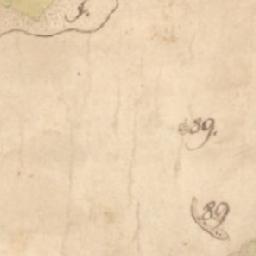 89.
89